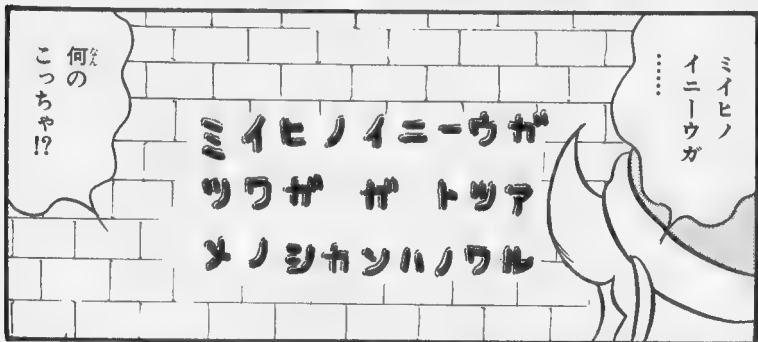 ミイヒノ
イニーウガ
………
ミイヒノイニーウガ
ツワガ ガ トツア
メノシカンハノワル
何の
なん
こっちゃ!?